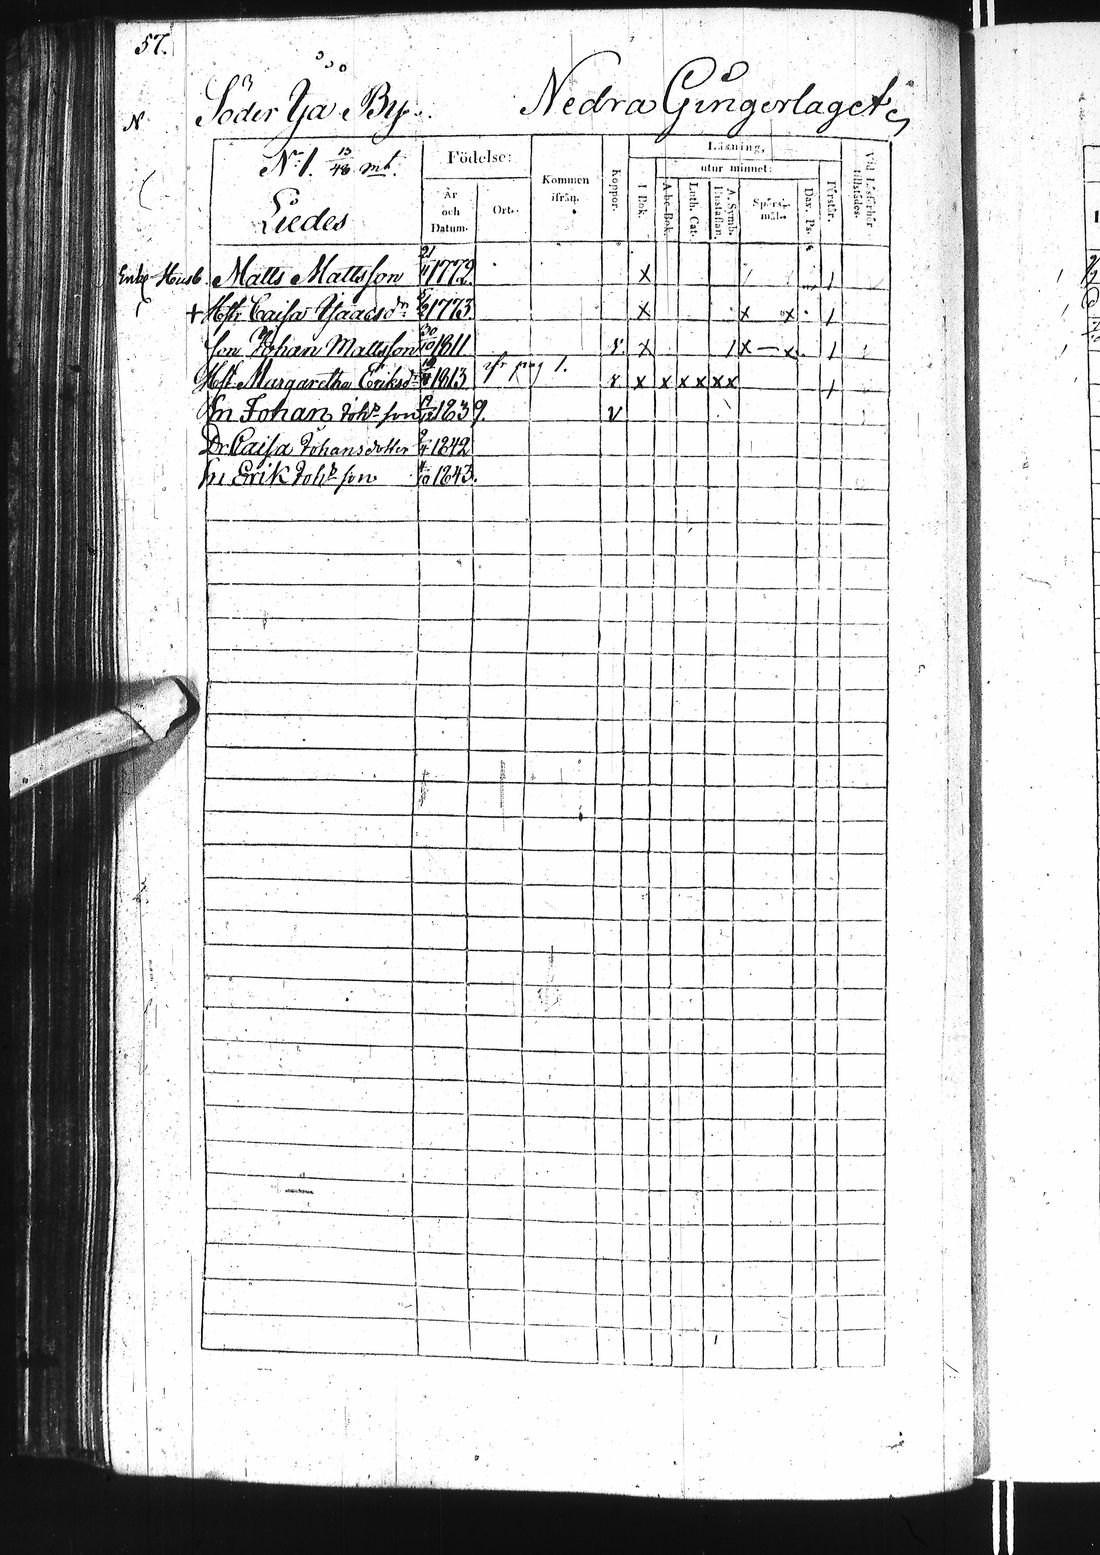 57.
Söder Yå By. Nedra Gingerlaget
N
N:1. 13/48 mt.
Liedes
Födelse:
År och Datum.
Ort.
Kommen ifrån.
Koppor.
Läsning,
I Bok.
utur minnet:
A-be-Bok.
Luth. Cat.
A. Symb. Hustaflan.
Spörsmål.
Dav. Ps.
Förstår.
Vid Läsförhör tillstädes.
Enkl Husb. Matts Mattsson 21/11 1772. x 1
+ Hstr Caisa Isaacsdr 1773 x x x 1
Son Johan Mattsson 30/10 1811 v. x 1 x — x 1
Hst Margaretha Eriksdr 1813 ifr pag 1. v x x x x x x 1
Sn Johan Johsson 1839. v
Dr Caisa Johansdotter 1842
Sn Erik Johsson 1843.